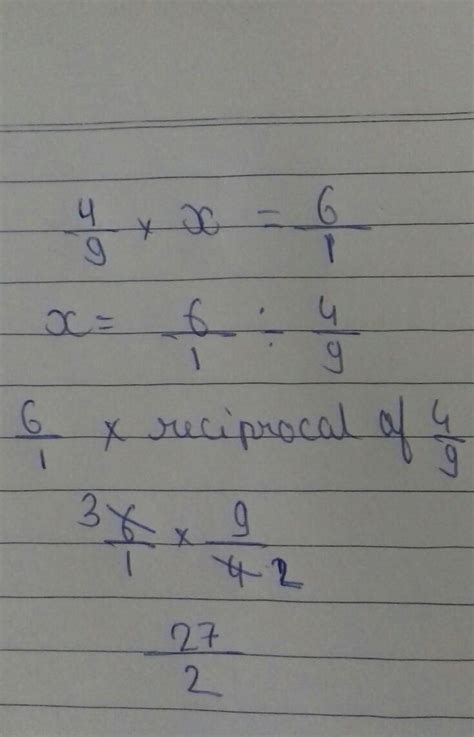 4/9 × x = 6/1
x = 6/1 ÷ 4/9
6/1 × reciprocal of 4/9
3 6/1 × 9/4 2
27/2